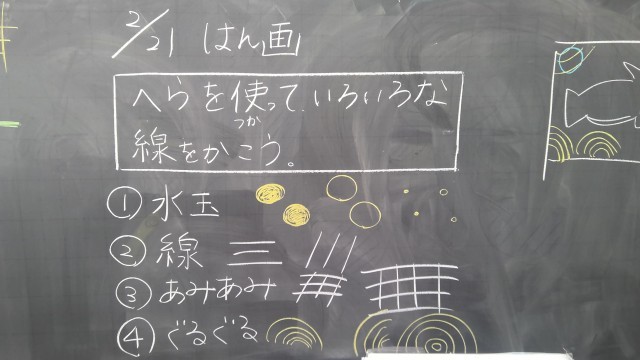 2/21 はん画
へらを使って、いろいろな
つか
線をかこう。
① 水玉
② 線
③ あみあみ
④ ぐるぐる